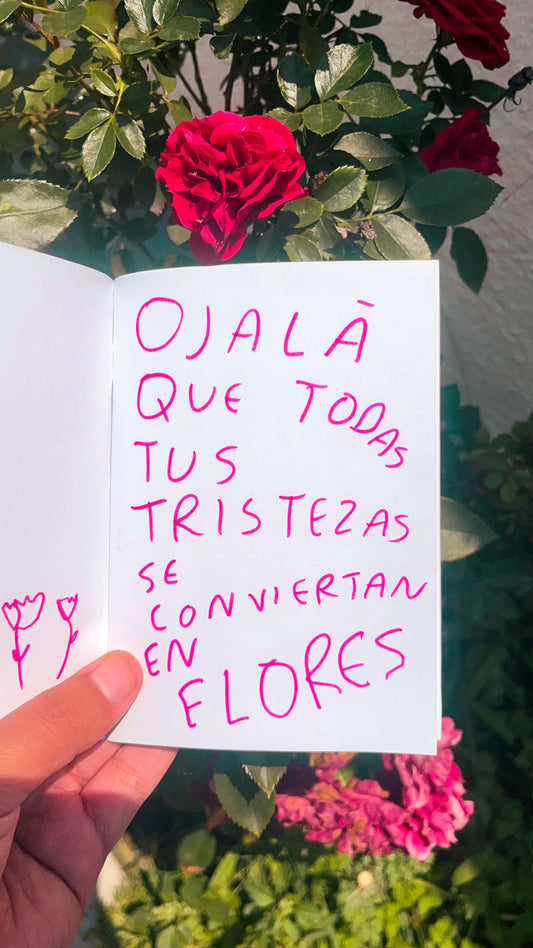 OJALÁ
QUE TODAS
TUS
TRISTEZAS
SE
CONVIERTAN
EN
FLORES